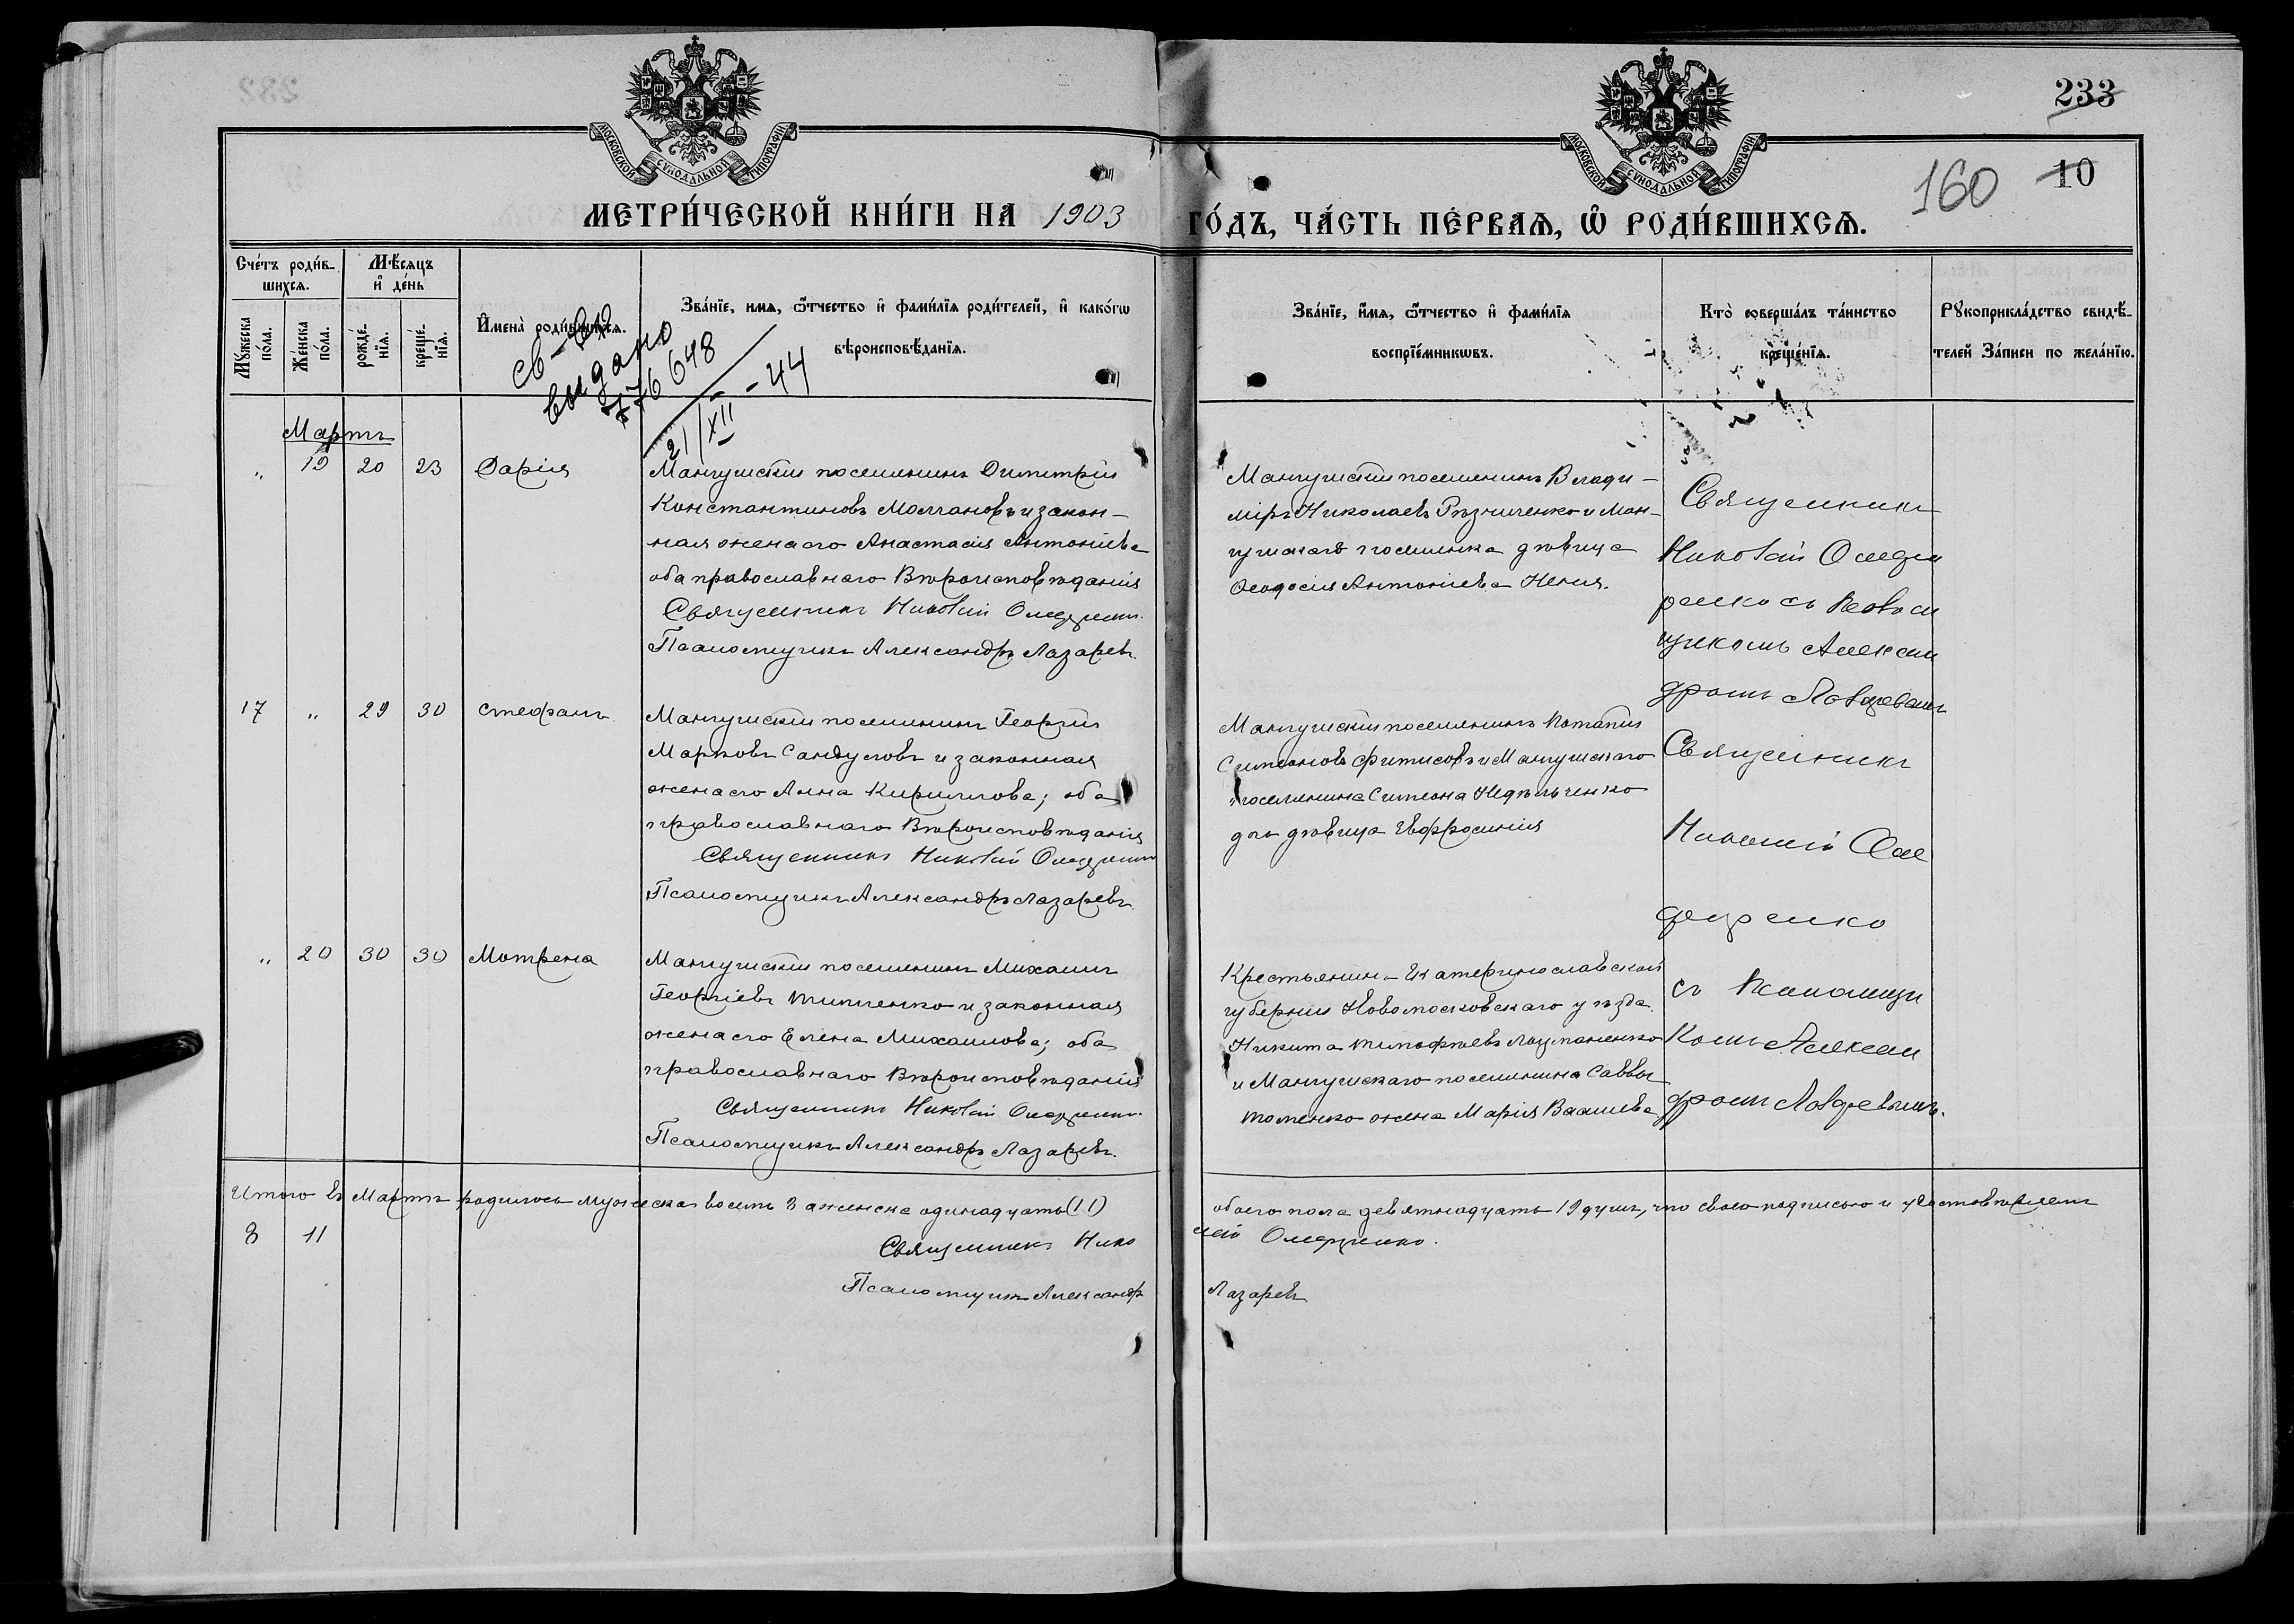 233
160 10
МОСКОВСКОЙ СѴНОДАЛЬНОЙ ТИПОГРАФІИ
МОСКОВСКОЙ СѴНОДАЛЬНОЙ ТИПОГРАФІИ
МЕТРИ́ЧЕСКОЙ КНИ́ГИ НА 1903 ГО́ДЪ, ЧА́СТЬ ПЕ́РВАѦ, Ѿ РОДИ́ВШИХСѦ.
Сче́тъ роди́вшихсѧ.
Мꙋ́жеска по́ла.
Же́нска по́ла.
Мѣ́сѧцъ и҆ де́нь
рожде́нїѧ.
креще́нїѧ.
И҆мена̀ роди́вшихсѧ.
Зва́нїе, и҆мѧ, ѻ҆́тчество и҆ фами́лїѧ роди́телей, и҆ како́гѡ вѣроисповѣ́данїѧ.
Зва́нїе, и҆́мѧ, ѻ҆́тчество и҆ фами́лїѧ воспрїе́мникѡвъ.
Кто̀ соверша́лъ та́инство креще́нїѧ.
Рꙋкоприкла́дство свидѣ́телей За́писи по жела́нїю.
св-во
выдано
776648
21/XII-44
Мартъ
" 19 20 23 Дарія
Мангушскій поселянинъ Димитрій
Константиновъ Молчановъ и закон-
ная жена его Анастасія Антоніева
оба православнаго Вѣроисповѣданія
Священникъ Николай
Псаломщикъ Александръ Лазаревъ.
Мангушскій поселянинъ Влади-
міръ Николаевъ Рѣзниченко и Ман-
гушскаго поселянка дѣвица
Ѳеодосія Антоніева
Священникъ
Николай
Псалом
щикомъ Алексан
дромъ Лазаревымъ
17 " 29 30 Стефанъ
Мангушскій поселянинъ Георгій
Марковъ Сандуловъ и законная
жена его Анна Кириллова; оба
православнаго Вѣроисповѣданія
Священникъ Николай
Псаломщикъ Александръ Лазаревъ.
Мангушскій поселянинъ Потапій
Симеоновъ Фитисовъ и Мангушскаго
поселянина Симеона Недѣльченко
дочь дѣвица Евфросинія
Священникъ
Николай
" 20 30 30 Мотрена
Мангушскій поселянинъ Михаилъ
Георгіевъ Типченко и законная
жена его Елена Михаилова; оба
православнаго Вѣроисповѣданія
Священникъ Николай
Псаломщикъ Александръ Лазаревъ.
Крестьянинъ Екатеринославской
губерніи Новомосковскаго уѣзда
Никита Тимофѣевъ
и Мангушскаго поселянина Саввы
Томенко жена Марія Васильева
съ Псаломщи
комъ Алексан
дромъ Лазаревымъ.
Итого въ Мартѣ родилось мужеска восемь 8 а женска одинадцать (11) обоего пола девятнадцать 19 душъ, что своею подписью и удостовѣряемъ
8 11
Священникъ Николай
Псаломщикъ Александръ Лазаревъ